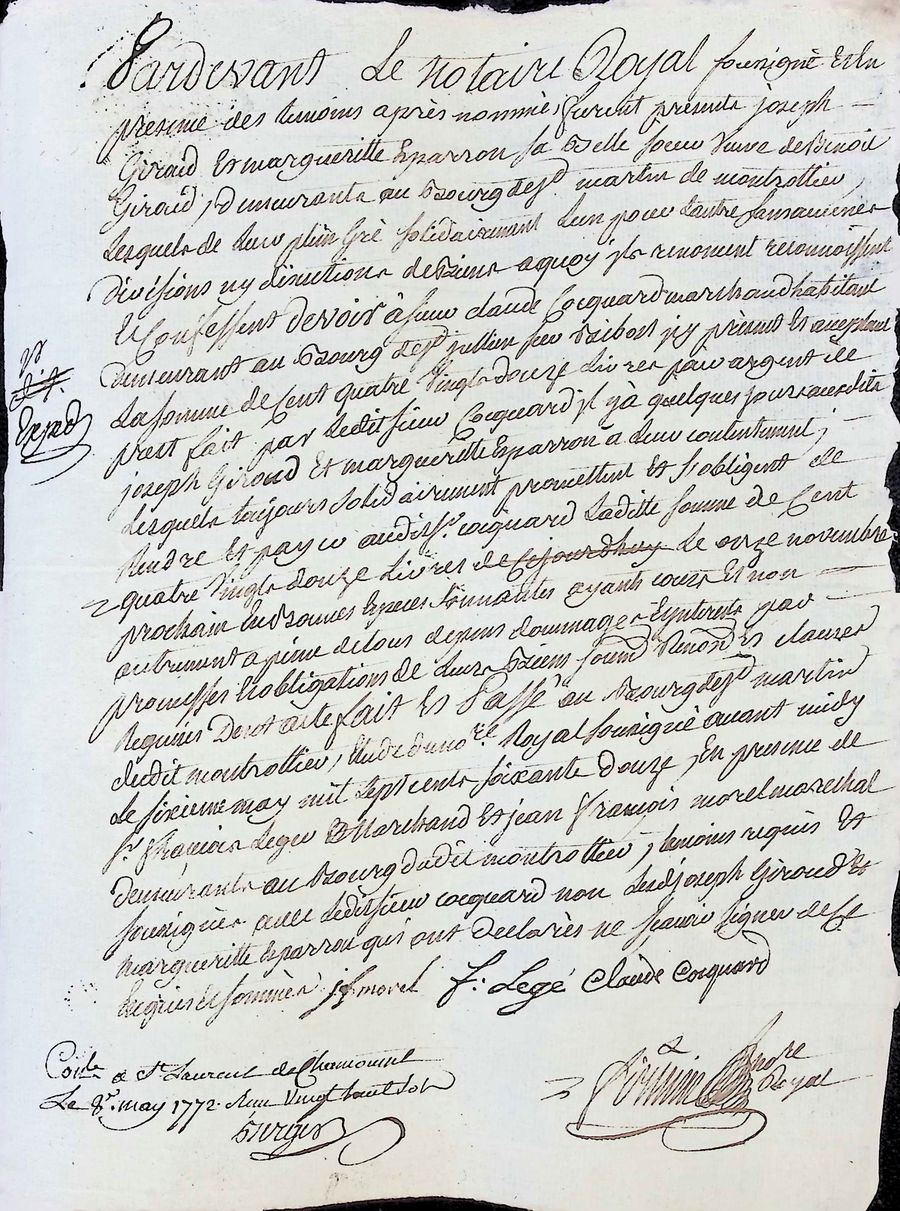 Pardevant Le notaire Royal sousigné Et En
presence des temoins après nommés, furent presents joseph
Giraud Et margueritte Eparron sa Belle soeur veuve de Benoit
Giraud, demeurants au Bourg de st martin de montrottier,
Lesquels de Leur plein gré solidairement L'un pour L'autre sans aucunes
Divisions ny directions de Biens a quoy ils renoncent reconnoissent
Et Confessent devoir à sieur claude Cocquard marchand habitant
Demeurant au Bourg de st jullien sur Bibost icy present Et acceptant
La somme de Cent quatre Vingts douze Livres pour argent de
prest fait par Ledit sieur Cocquard il y à quelques jours auxdits
joseph Giraud Et margueritte Eparron a Leur contentement;
Lesquels toujours solidairement promettent Et s'obligent de
Rendre Et payer audit sr. cocquard Laditte somme de Cent
quatre Vingts douze Livres de Cejourdhuy Le onze novembre
prochain En Bonnes Especes sonnantes ayants cours Et non
autrement a peine de tous depens dommages Et interets par
promesses Et obligations de Leurs Biens soumis Renon Et clauses
Requises Dont acte fait Et Passé au Bourg de st martin
dudit montrottier, Etude du nore. Royal sousigné avant midy
Le sixieme may mil sept cents soixante douze, En presence de
sr. françois Leger Marchand Et jean françois morel marechal
demeurants au Bourg dudit montrottier, temoins requis Et
sousignés avec Ledit sieur cocquard non Lesd joseph Giraud Et
margueritte Eparron qui ont declarés ne sçavoir signer de Ce
Enquis Et sommés jf morel f: Legé Claude Cocquard
Vs
Exped
Conlé a St Laurent de Chamousset
Le 8e. may 1772. Reçu Vingt huit sols
nore
Royal